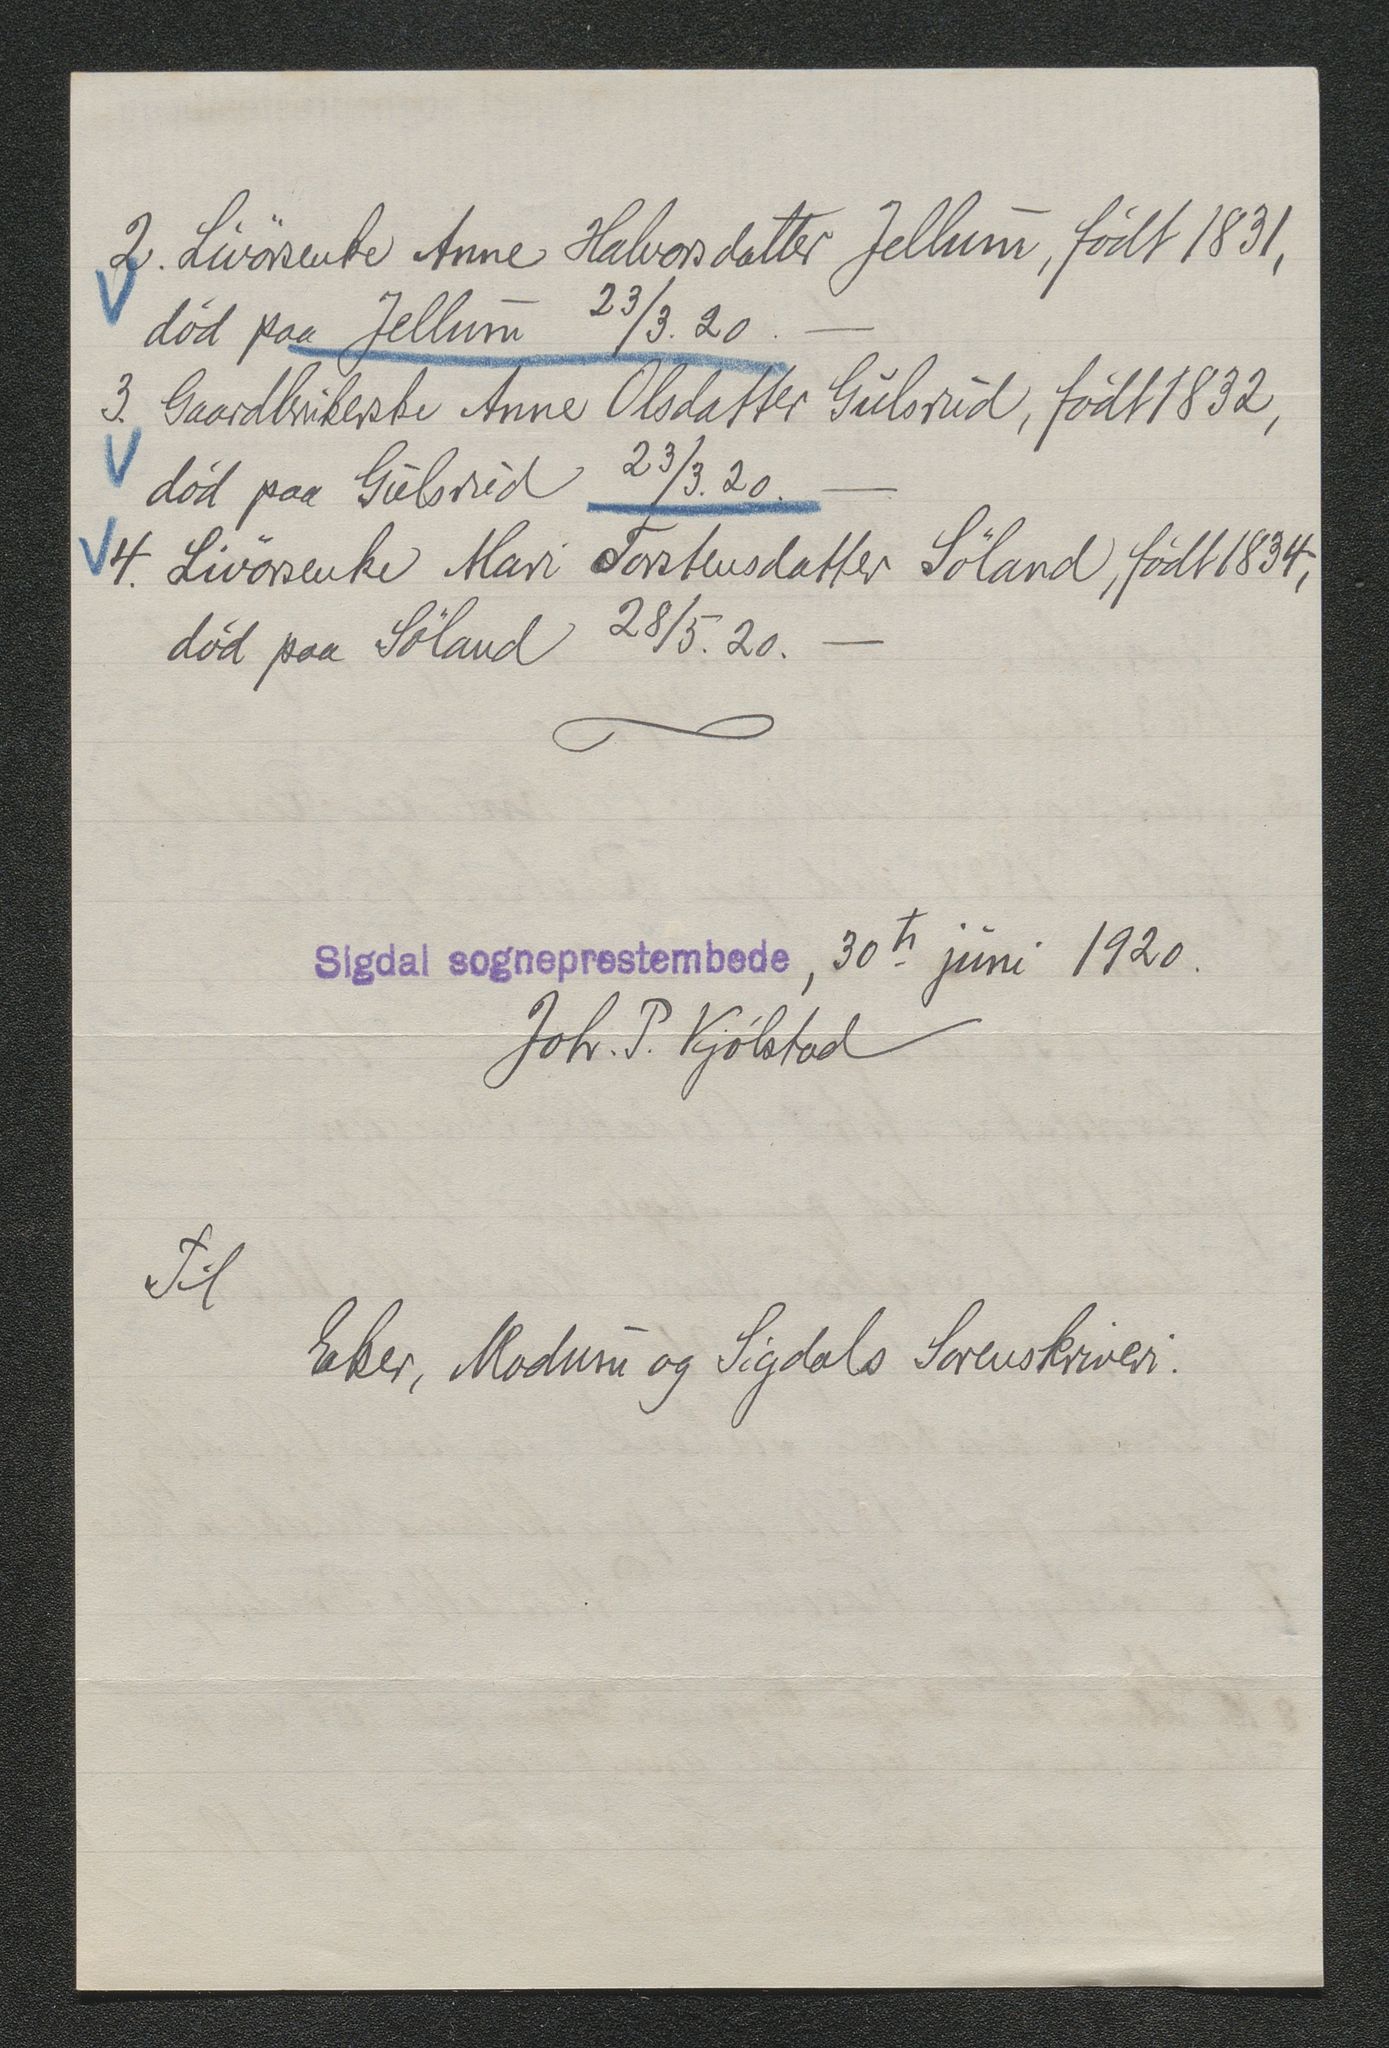 2. Livörsenke Anne Halvorsdatter Jellum̄, födt 1831,
död paa Jellum̄ 23/3. 20. —
3. Gaardbrukerske Anne Olsdatter Gŭlsrŭd, födt 1832,
död paa Gŭlsrŭd 23/3. 20. —
4. Livörsenke Mari Torstensdatter Söland, födt 1834,
död paa Söland 28/5. 20. —
Sigdal sogneprestembede, 30te jŭni 1920.
Joh. P. Kjölstad
Til
Eker, Modum̄ og Sigdals Sorenskriveri.